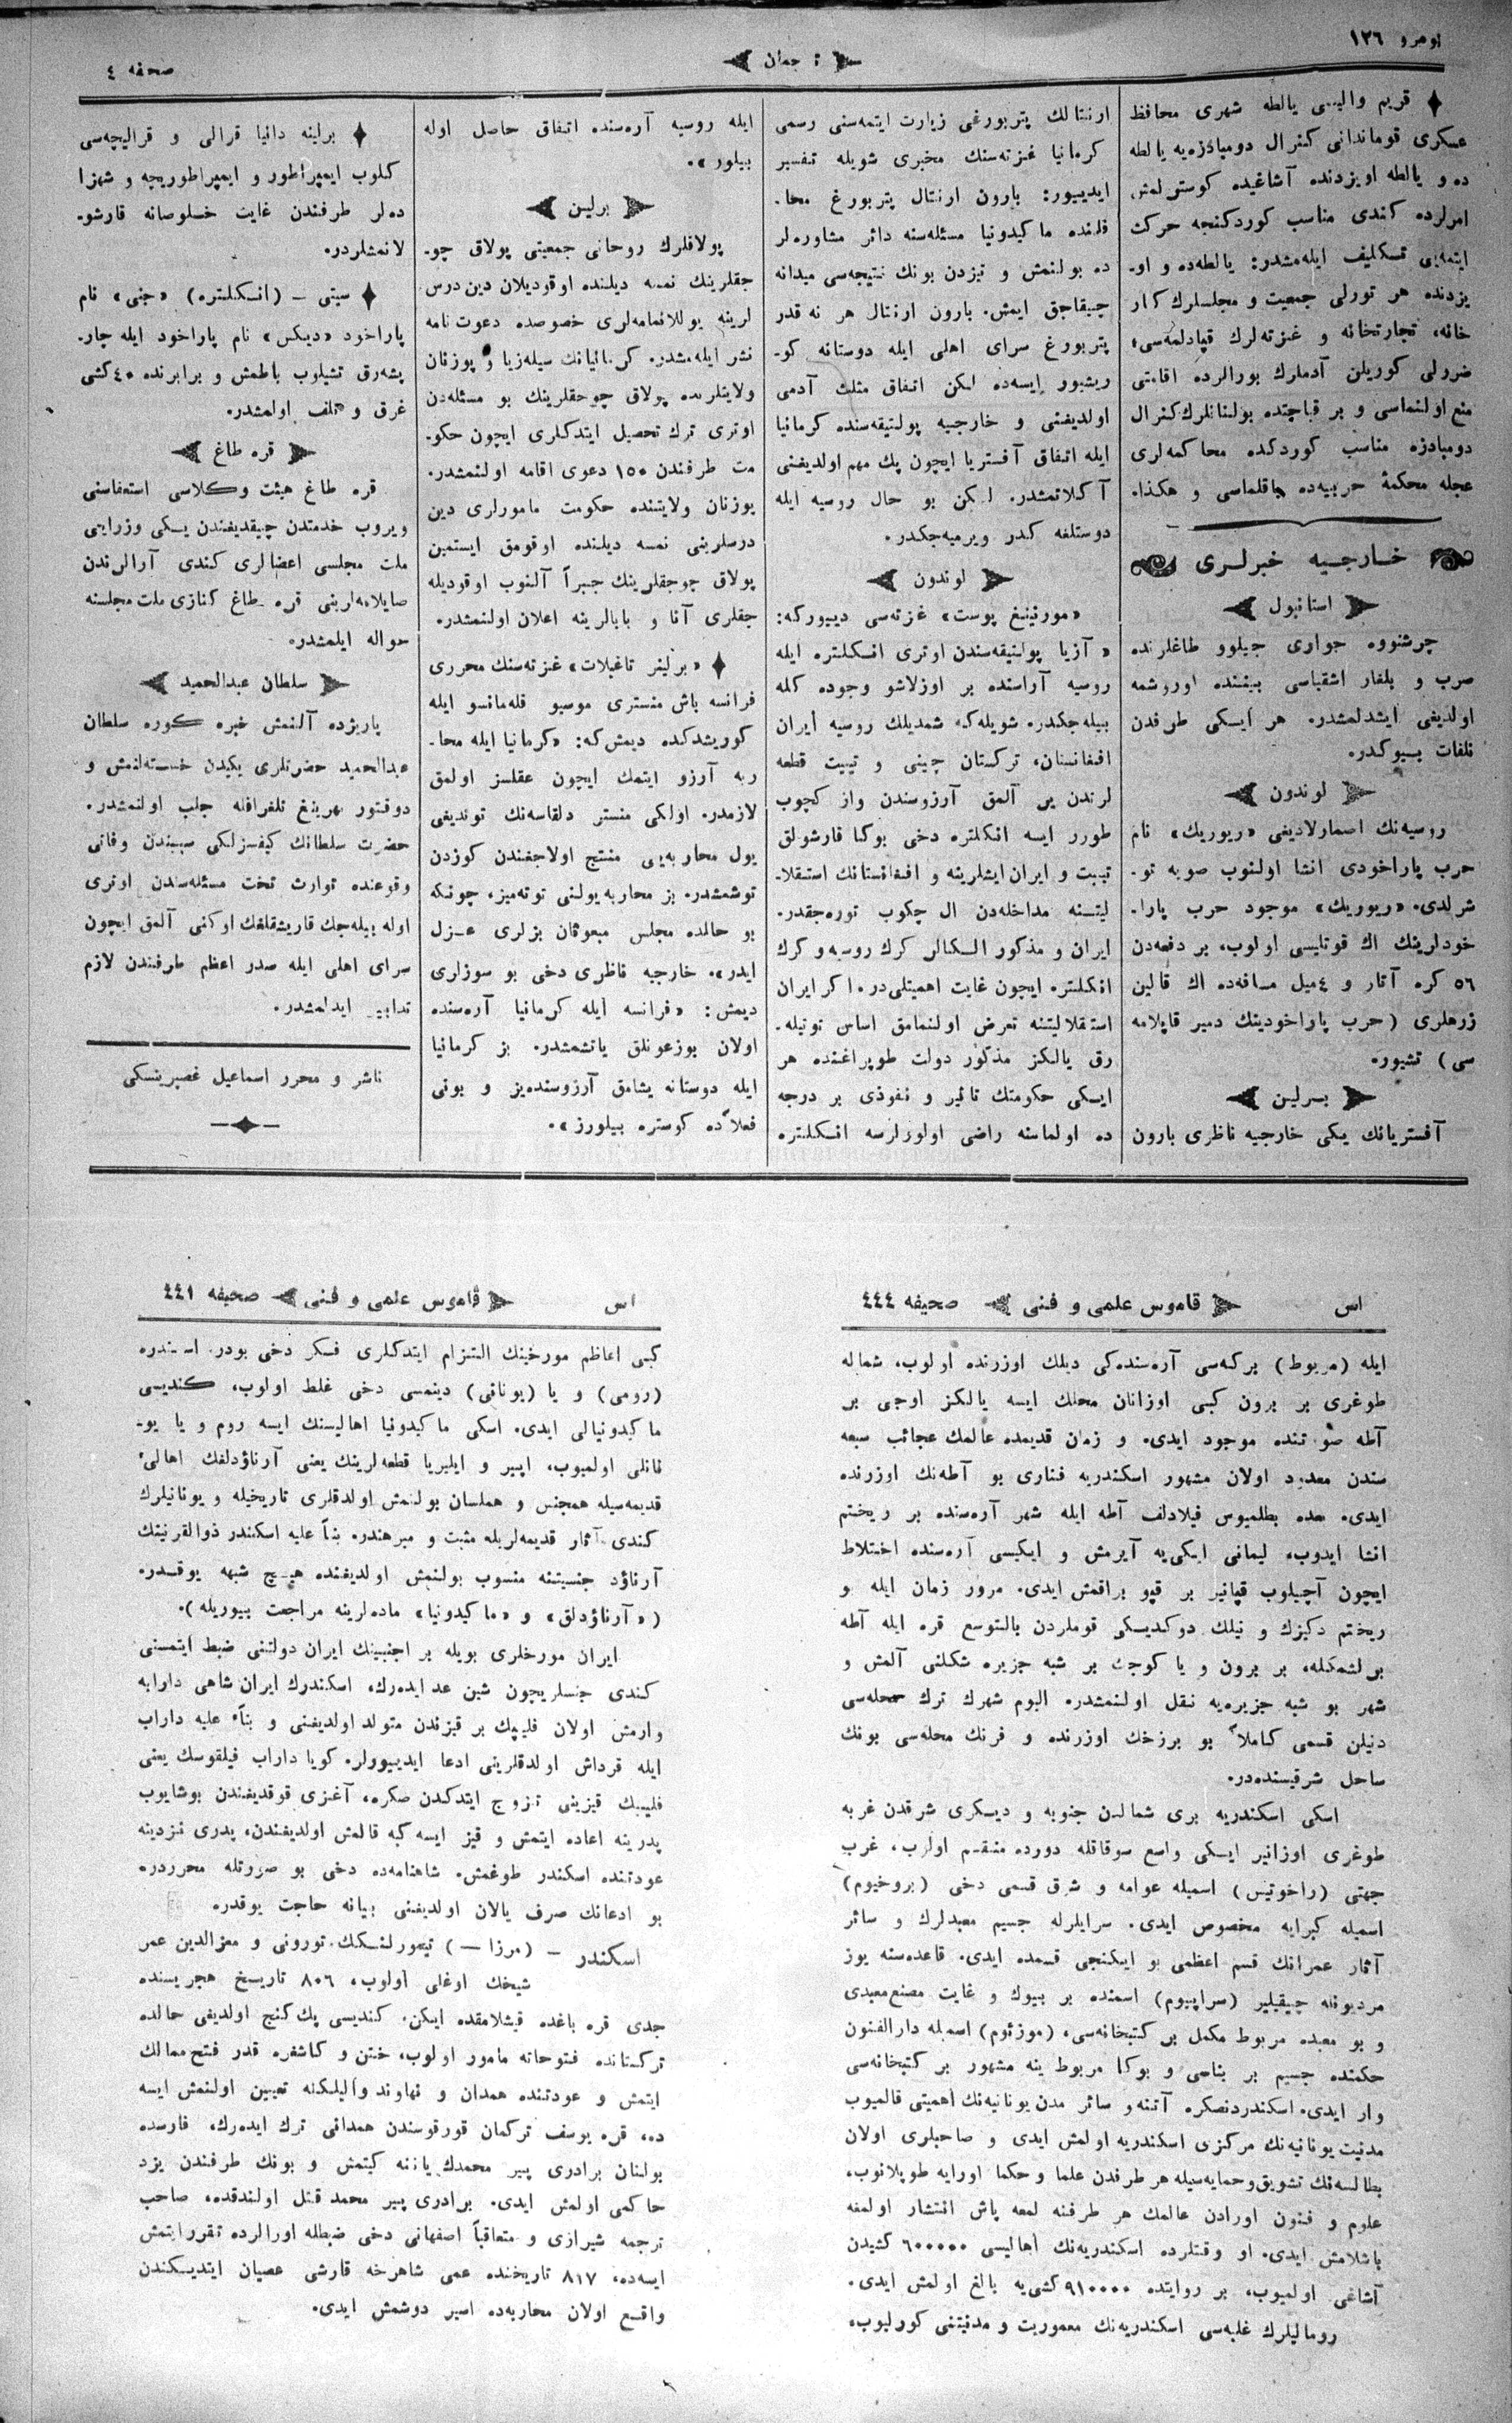 نومرو ١٢٦
ترجمان
صحفه ٤
قریم والیسی یالطه شهری محافظ
عسکری قوماندانی کنرال دومبادزه‌یه یالطه
ده و یالطه اویزدنده آشاغیده کوسترلمش
امرلرده کندی مناسب کوردکنجه حرکت
ایتمه‌یی تکلیف ایله‌مشدر: یالطه‌ده و او-
یزدنده هر تورلی جمعیت و مجلسلرك کار
خانه، تجارتخانه و غزته‌لرك قپادلمه‌سی؛
ضررلی کوریلن آدملرك بورالرده اقامتی
منع اولنماسی و بر قباحتده بولنانلرك کنرال
دومبادزه مناسب کوردکده محاکمه‌لری
عجله محکمهٔ حربیه‌ده باقلماسی و هکذا.
خارجیه خبرلری
استانبول
چرشنووه جواری جیلوو طاغلرنده
صرب و بلغار اشقیاسی بیننده اوروشمه
اولدیغی ایشدلمشدر. هر ایسکی طرفدن
تلفات بیوکدر.
لوندون
روسیه‌نك اصمارلادیغی «ریوریك» نام
حرب پاراخودی انشا اولنوب صوبه تو-
شرلدی. «ریوریك» موجود حرب پارا-
خودلرینك اك قوتلیسی اولوب، بر دفعه‌دن
٥٦ کره آتار و ٤ میل مسافه‌ده اك قالین
زرهلری (حرب پاراخودینك دمیر قاپلامه
سی) تشیور.
برلین
آفستریانك یکی خارجیه ناظری بارون
ارنتالك پتربورغی زیارت ایتمه‌سنی رسمی
کرمانیا غزته‌سنك مخبری شویله تفسیر
ایدییور: بارون ارنتال پتربورغ محا-
فلنده ماکیدونیا مسئله‌سنه دائر مشاوره‌لر
ده بولنمش و تیزدن بونك نتیجه‌سی میدانه
چیقاجق ایمش. بارون ارنتال هر نه قدر
پتربورغ سرای اهلی ایله دوستانه کو-
ریشیور ایسه‌ده لکن اتفاق مثلث آدمی
اولدیغنی و خارجیه پولتیقه‌سنده کرمانیا
ایله اتفاق آفستریا ایچون پك مهم اولدیغنی
آکلاتمشدر. لکن بو حال روسیه ایله
دوستلغه کدر ویرمیه‌جکدر.
لوندون
«مورنینغ پوست» غزته‌سی دییورکه:
«آزیا پولتیقه‌سندن اوتری انکلتره ایله
روسیه آراسنده بر اوزلاشو وجوده کله
بیله‌جکدر. شویله‌که شمدیلك روسیه ایران
افغانستان، ترکستان چینی و تیبت قطعه
لرندن یر آلمق آرزوسندن واز کچوب
طورر ایسه انکلتره دخی بوکا قارشولق
تیبت و ایران ایشلرینه و افغانستانك استقلا-
لیتنه مداخله‌دن ال چکوب توره‌جقدر.
ایران و مذکور الکالر کرك روسیه و کرك
انکلتره ایچون غایت اهمیتلی‌در. اکر ایران
استقلالیتنه تعرض اولنمامق اساس تونیله-
رق یالکز مذکور دولت طوپراغنده هر
ایکی حکومتك تاثیر و نفوذی بر درجه
ده اولماسنه راضی اولورلرسه انکلتره
ایله روسیه آره‌سنده اتفاق حاصل اوله
بیلور».
برلین
پولاقلرك روحانی جمعیتی پولاق چو-
جقلرینك نمسه دیلنده اوقودیلان دین درس
لرینه یوللانمامه‌لری خصوصده دعوت نامه
نشر ایله‌مشدر. کرمانیانك سیله‌زیا و پوزنان
ولایتلرنده پولاق چوجقلرینك بو مسئله‌دن
اوتری ترك تحصیل ایتدکلری ایچون حکو-
مت طرفندن ١٥٠ دعوی اقامه اولنمشدر.
پوزنان ولایتنده حکومت مامورلری دین
درسلرینی نمسه دیلنده اوقومق ایستمین
پولاق چوجقلرینك جبراً آلنوب اوقودیله
جقلری آنا و بابالرینه اعلان اولنمشدر.
«برلینر تاغبلات» غزته‌سنك محرری
فرانسه باش منستری موسیو قله‌مانسو ایله
کوریشدکده دیمش‌که: «کرمانیا ایله محا-
ربه آرزو ایتمك ایچون عقلسز اولمق
لازمدر. اولکی منستر دلقاسه‌نك توتدیغی
یول محاربه‌یی منتج اولاجغندن کوزدن
توشمشدر. بز محاربه یولنی توته‌میز، چونکه
بو حالده مجلس مبعوثان بزلری عزل
ایدر». خارجیه ناظری دخی بو سوزلری
دیمش: «فرانسه ایله کرمانیا آره‌سنده
اولان بوزغونلق یاتشمشدر. بز کرمانیا
ایله دوستانه یشامق آرزوسنده‌یز و بونی
فعلاً ده کوستره بیلورز».
برلینه دانیا قرالی و قرالیچه‌سی
کلوب ایمپراطور و ایمپراطوریچه و شهزا
ده‌لر طرفندن غایت خلوصانه قارشو-
لانمشلردر.
سیتی — (انکلتره) «جنی» نام
پاراخود «دیکس» نام پاراخود ایله چار-
پشه‌رق تشیلوب باطمش و برابرنده ٤٠ کشی
غرق و تلف اولمشدر.
قره طاغ
قره طاغ هیئت وکلاسی استعفاسنی
ویروب خدمتدن چیقدیغندن یسکی وزرایی
ملت مجلسی اعضالری کندی آرالرندن
صایلامه‌لرینی قره طاغ کنازی ملت مجلسنه
حواله ایلمشدر.
سلطان عبدالحمید
پاریزده آلنمش خبره کوره سلطان
عبدالحمید حضرتلری یکیدن خسته‌لنمش و
دوقتور بهرینغ تلغرافله جلب اولنمشدر.
حضرت سلطانك کیفسزلکی سببندن وفاتی
وقوعنده توارث تخت مسئله‌سندن اوتری
اوله بیله‌جك قاریشقلغك اوکنی آلمق ایچون
سرای اهلی ایله صدر اعظم طرفندن لازم
تدابیر ایدلمشدر.
ناشر و محرر اسماعیل غصپرینسکی
اس
قاموس علمی و فنی
صحیفه ٤٤٤
ایله (مربوط) برکه‌سی آره‌سنده‌کی دیلك اوزرنده اولوب، شماله
طوغری بر برون کبی اوزانان محلك ایسه یالکز اوجی بر
آطه صورتنده موجود ایدی. و زمان قدیمده عالمك عجائب سبعه
سندن معدود اولان مشهور اسکندریه فناری بو آطه‌نك اوزرنده
ایدی. بعده بطلمیوس فیلادلف آطه ایله شهر آره‌سنده بر ریختم
انشا ایدوب، لیمانی ایکی‌یه آیرمش و ایکیسی آره‌سنده اختلاط
ایچون آچیلوب قپانیر بر قپو براقمش ایدی. مرور زمان ایله بو
ریختم دکیزك و نیلك دوکدیکی قوملردن بالتوسع قره ایله آطه
برلشمکله، بر برون و یا کوچك بر شبه جزیره شکلنی آلمش و
شهر بو شبه جزیره‌یه نقل اولنمشدر. الیوم شهرك ترك محله‌سی
دنیلن قسمی کاملاً بو برزخك اوزرنده و فرنك محله‌سی بونك
ساحل شرقیسنده‌در.
اسکی اسکندریه بری شمالدن جنوبه و دیکری شرقدن غربه
طوغری اوزانیر ایکی واسع سوقاقله دورده منقسم اولوب، غرب
جهتی (راخوتیس) اسمیله عوامه و شرق قسمی دخی (بروخیوم)
اسمیله کبرایه مخصوص ایدی. سرایلرله جسیم معبدلرك و سائر
آثار عمرانك قسم اعظمی بو ایکنجی قسمده ایدی. قاعده‌سنه یوز
مردیونله چیقیلیر (سراپیوم) اسمنده بر بیوك و غایت مصنع معبدی
و بو معبده مربوط مکمل بر کتبخانه‌سی، (موزئوم) اسمیله دارالفنون
حکمنده جسیم بر بناسی و بوکا مربوط ینه مشهور بر کتبخانه‌سی
وار ایدی. اسکندردنصکره آتنه و سائر مدن یونانیه‌نك اهمیتی قالمیوب
مدنیت یونانیه‌نك مرکزی اسکندریه اولمش ایدی و صاحبلری اولان
بطالسه‌نك تشویق و حمایه‌سیله هر طرفدن علما و حکما اورایه طوپلانوب،
علوم و فنون اورادن عالمك هر طرفنه لمعه پاش انتشار اولمغه
باشلامش ایدی. او وقتلرده اسکندریه‌نك اهالیسی ٦٠٠٠٠٠ کشیدن
آشاغی اولمیوب، بر روایتده ٩١٠٠٠٠ کشی‌یه بالغ اولمش ایدی.
رومالیلرك غلبه‌سی اسکندریه‌نك معموریت و مدنیتنی کورلیوب،
اس
قاموس علمی و فنی
صحیفه ٤٤١
کبی اعاظم مورخینك التزام ایتدکلری فکر دخی بودر. اسکندره
(رومی) و یا (یونانی) دینمسی دخی غلط اولوب، کندیسی
ماکیدونیالی ایدی. اسکی ماکیدونیا اهالیسنك ایسه روم و یا یو-
نانلی اولمیوب، اپیر و ایلیریا قطعه‌لرینك یعنی آرناؤدلفك اهالیٔ
قدیمه‌سیله همجنس و هملسان بولنمش اولدقلری تاریخیله و یونانیلرك
کندی آثار قدیمه‌لریله مثبت و مبرهندر. بناً علیه اسکندر ذوالقرنینك
آرناؤد جنسیتنه منسوب بولنمش اولدیغنده هیچ شبهه یوقدر.
(«آرناؤدلق» و «ماکیدونیا» ماده‌لرینه مراجعت بیوریله).
ایران مورخلری بویله بر اجنبینك ایران دولتنی ضبط ایتمسنی
کندی جنسلریچون شین عد ایده‌رك، اسکندرك ایران شاهی دارابه
وارمش اولان فلیپك بر قیزندن متولد اولدیغنی و بناًء علیه داراب
ایله قرداش اولدقلرینی ادعا ایدییورلر. کویا داراب فیلقوسك یعنی
فلیپك قیزینی تزوج ایتدکدن صکره، آغزی قوقدیغندن بوشایوب
پدرینه اعاده ایتمش و قیز ایسه کبه قالمش اولدیغندن، پدری نزدینه
عودتنده اسکندر طوغمش. شاهنامه‌ده دخی بو صورتله محرردر.
بو ادعانك صرف یالان اولدیغنی بیانه حاجت یوقدر.
اسکندر — (مرزا —) تیمورلنکك تورونی و معزالدین عمر
شیخك اوغلی اولوب، ٨٠٦ تاریخ هجریسنده
جدی قره باغده قیشلامقده ایکن، کندیسی پك کنج اولدیغی حالده
ترکستانده فتوحاته مامور اولوب، ختن و کاشغره قدر فتح ممالك
ایتمش و عودتنده همدان و نهاوند والیلکنه تعیین اولنمش ایسه
ده، قره یوسف ترکمان قورقوسندن همدانی ترك ایده‌رك، فارسده
بولنان برادری پیر محمدك یاننه کیتمش و بونك طرفندن یزد
حاکمی اولمش ایدی. برادری پیر محمد قتل اولندقده، صاحب
ترجمه شیرازی و متعاقباً اصفهانی دخی ضبطله اورالرده تقرر ایتمش
ایسه‌ده، ٨١٧ تاریخنده عمی شاهرخه قارشی عصیان ایتدیکندن
واقع اولان محاربه‌ده اسیر دوشمش ایدی.